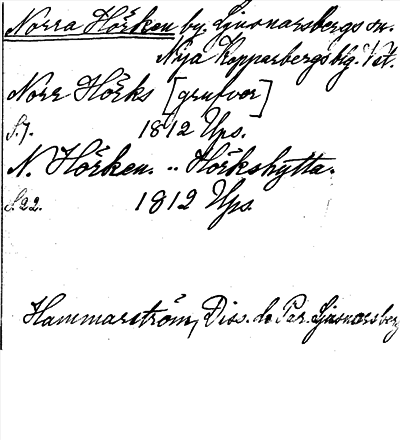 Norra Hörken by, Ljusnarsbergs sn.
Nya Kopparbergs blg. Vst.
Norr Hörks [grufvor]
S.7. 1812 Ups.
N. Hörken. .. Hörkshytta.
S.22. 1812 Ups.
Hammarström, Diss. de Par. Ljusnarsberg